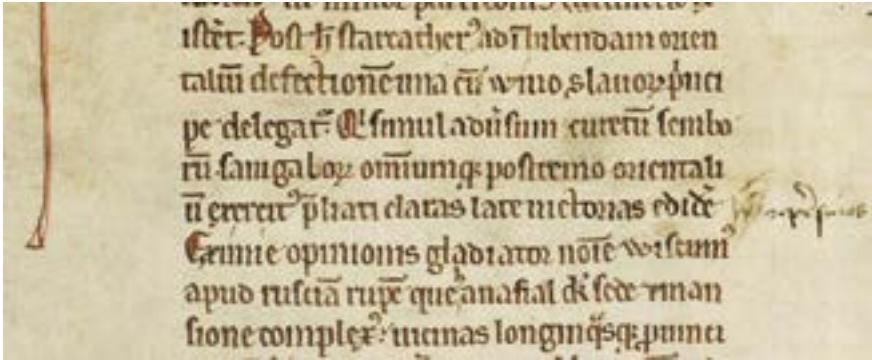 istēt. Post h̄ starcatherꝰ ad īhibendam orien
taliū defectionē una cū wino, slauoꝝ p̉nci
pe delegatᷣ. Qͥ simul adūsum curetū sembo
rū. sangaloꝝ omīumqꝫ postremo orientali
ū exercitꝰ p̄liati claras late uictorias edidē
Eximie opinionis gladiator noīe wisinnꝰ
apud rusciā rupē que anafial dr̄ sede ⁊ man
sione complexꝰ. uicinas longinq̄sqꝫ ꝓuinci